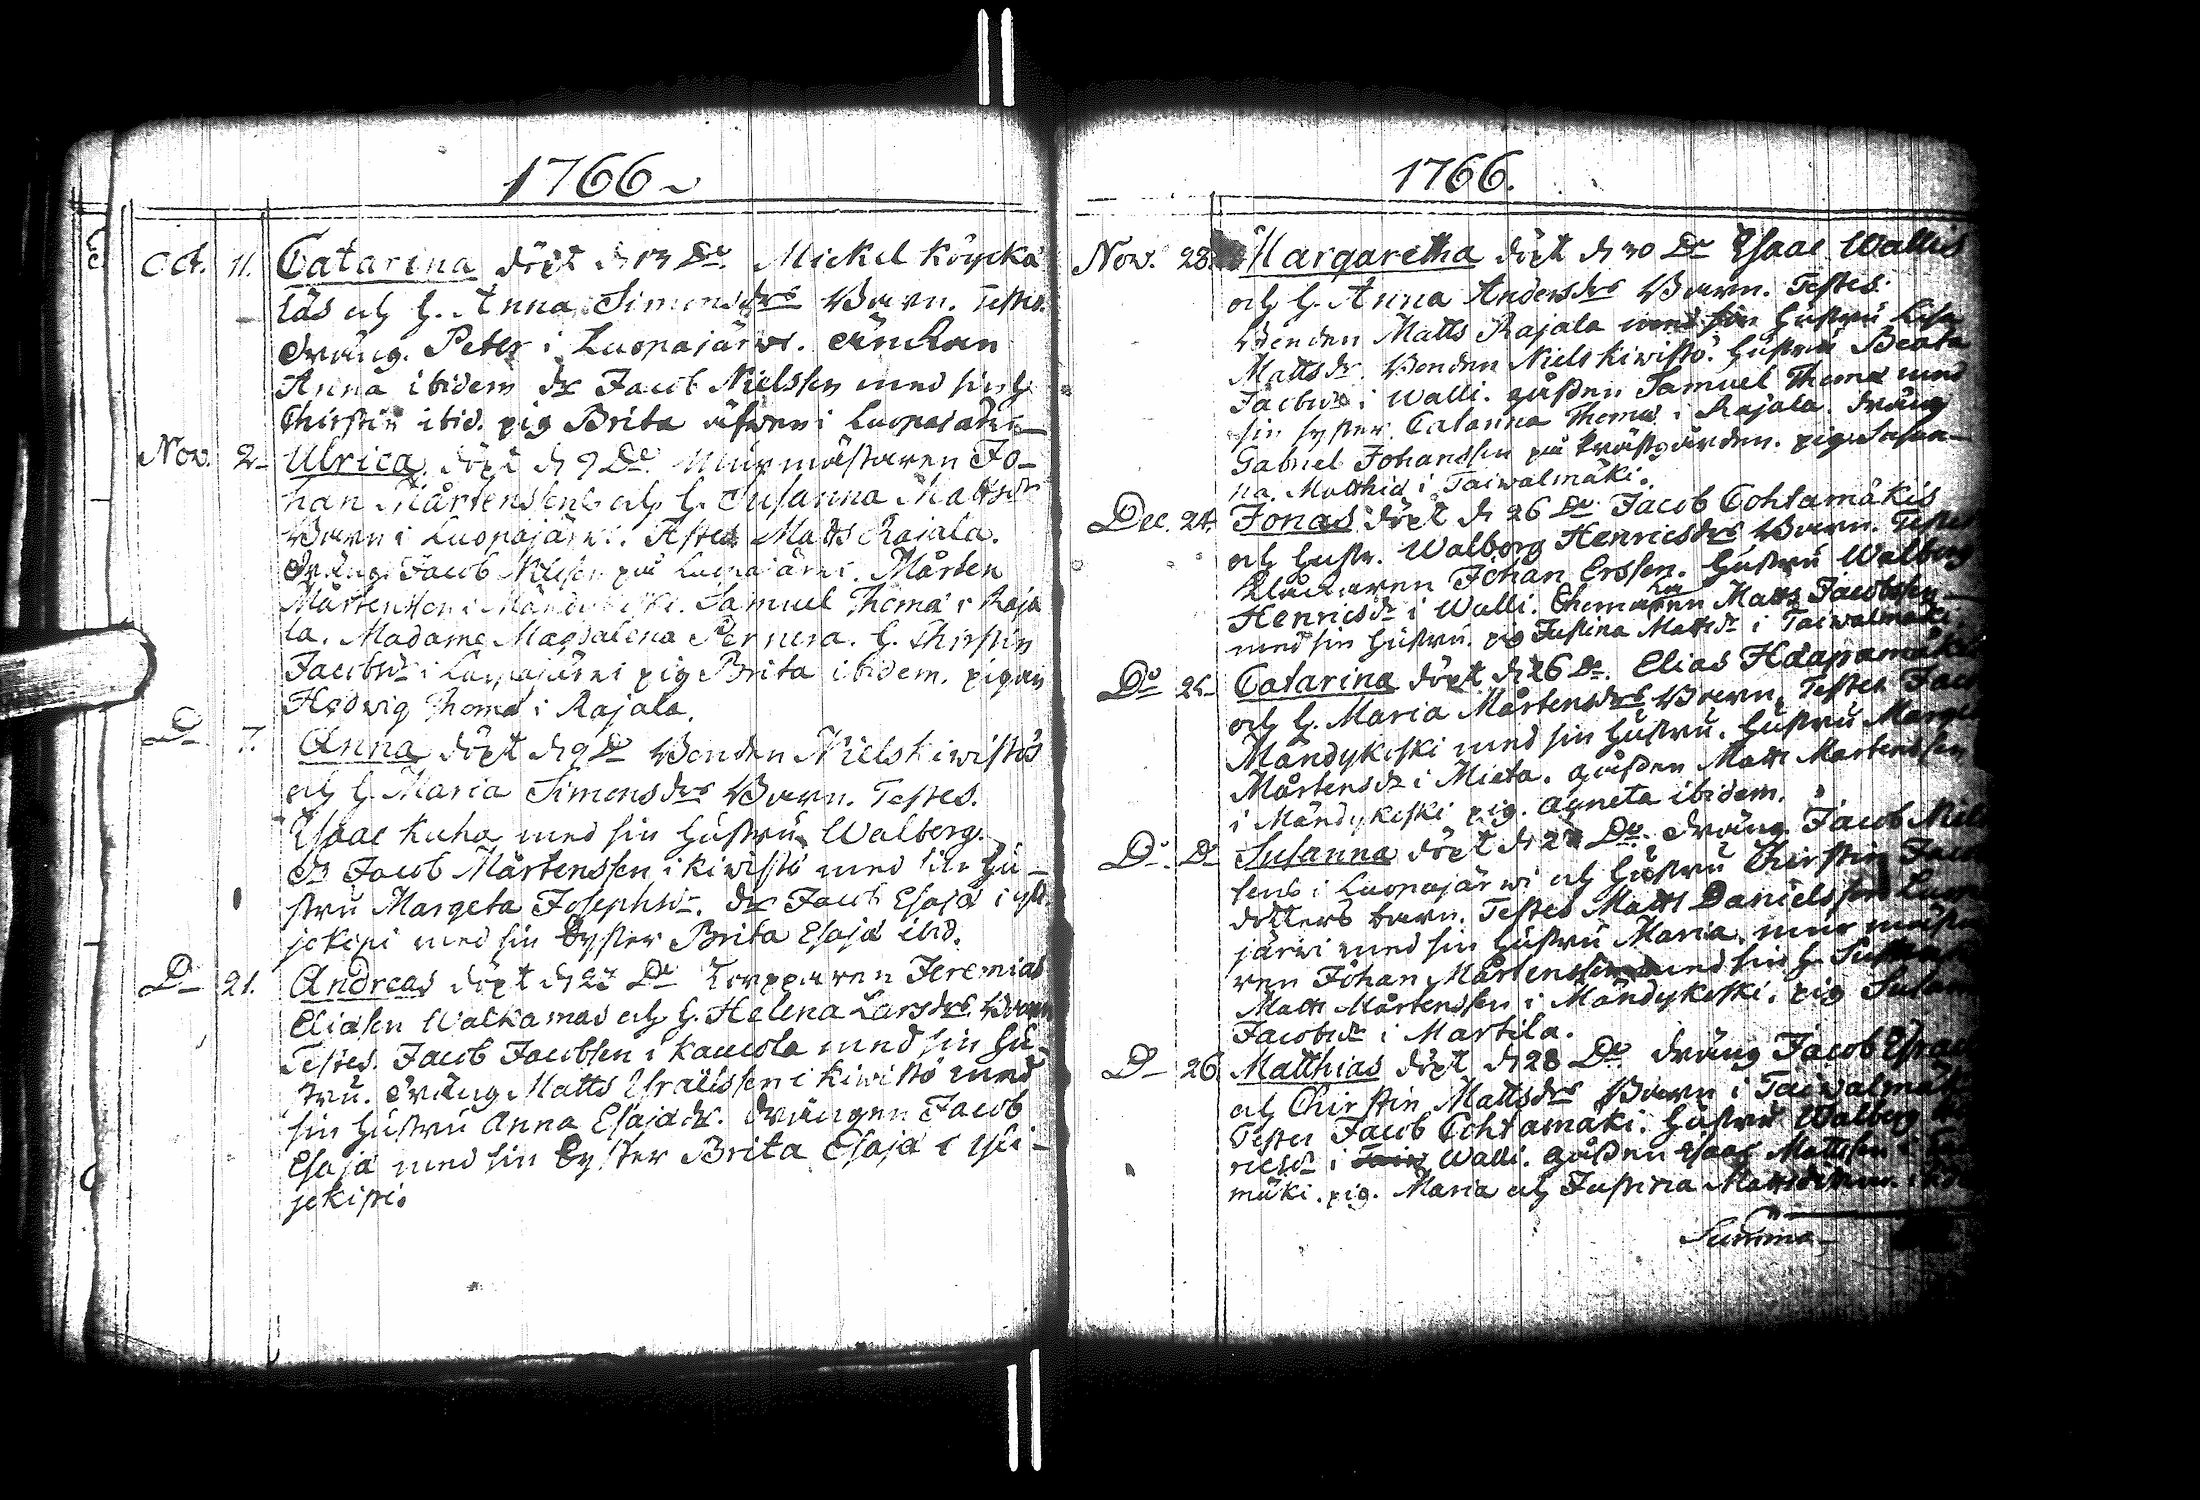 1766
Oct. 11. Catarina döpt d. 13 Do. Mickel Köycka
läs och h. Anna Simonsdrs Barn. Testes.
dräng. Peter i Luopajärvi. änckan
Anna ibidem dr Jacob Nielssen med sin h
Chirstin ibid. pig Brita äfwen i
Nov. 2 Ulrica döpt d 9 Do. Murmästaren Jo-
han Mårtenssens och h. Susanna Mattsdr
Barn i Luopajärvi. Testes Matts Rajala.
dräng Jacob Nielsen på Luopajärvi. Mårten
Mårtenssen i Samuel Thoma i Raja
la. Madame Magdalena Pernera. h. Chirstin
Jacobsdr i Luopajärvi pig Brita ibidem. pigan
Hedwig Thoma i Rajala.
Do 7. Anna döpt d 9 Do Bonden Niels Kiwistös
och h. Maria Simonsdrs Barn. Testes.
Esaac Kuha med sin hustru Walborg.
dr Jacob Mårtenssen i Kiwistö med sin hu-
stru Margeta Josephsdr. dr Jacob Esaja i
jokipi med sin Syster Brita Esaja ibid.
Do 21. Andreas döpt d 23 Do Torpparen Jeremias
Eliasen Walkamas och h. Helena Larsdrs Barn
Testes. Jacob Jacobsen i Kaucola med sin hu-
stru. dräng Matts Esraelssen i Kiwistö med
sin hustru Anna Esajadr. drängen Jacob
Esaja med sin Syster Brita Esaja i
jokipi.
1766.
Nov. 28. Margaretha döpt d 30 Do Esaac Wallis
och h. Anna Andersdrs Barn. Testes.
Bonden Matts Rajala med sin hustru Lisa
Mattsdr. Bonden Niels Kiwistö. hustru Beata
Jacobsdr i Walli. gåssen Samuel Thoma med
sin syster Catarina Thoma i Rajala. dräng
Gabriel Johanssen på Prästgården. pig. Susan-
na. Matthia i Taiwalmäki.
Dec. 24. Jonas döpt d 26 Do Jacob Cohtamäkis
och hustr. Walborg Henricsdrs Barn. Testes
Klockaren Johan Erssen. hustru Walborg
Henricsdr i Walli. Matts Jacobssen
med sin hustru. pig Justina Mattsdr i Taiwalmäki.
Do 25 Catarina döpt d 26 Do. Elias Haapamäkis
och h. Maria Mårtensdrs Barn. Testes
Mändykoski med sin hustru. hustru
Mårtensdr i Mieta. gåssen Matts Mårtenssen
i Mändykoski pig. Agneta ibidem.
Do. Do Susanna döpt d 27 Do. dräng. Jacob
sens i Luopajärvi och hustru Chirstin
dotters barn. Testes Matts Danielssen
järvi med sin hustru Maria. mur mästa
ren Johan Mårtenssen med sin h.
Matts Mårtenssen i Mändykoski. pig
Jacobsdr i Martila.
Do 26 Matthias döpt d 28 Do dräng Jacob
och Chirstin Mattsdrs Barn i
Testes Jacob Cohtamäki. hustru Walborg
ricsdr i Walli. gåssen Esaac Mattssen i
mäki. pig. Maria och Justina
Summa